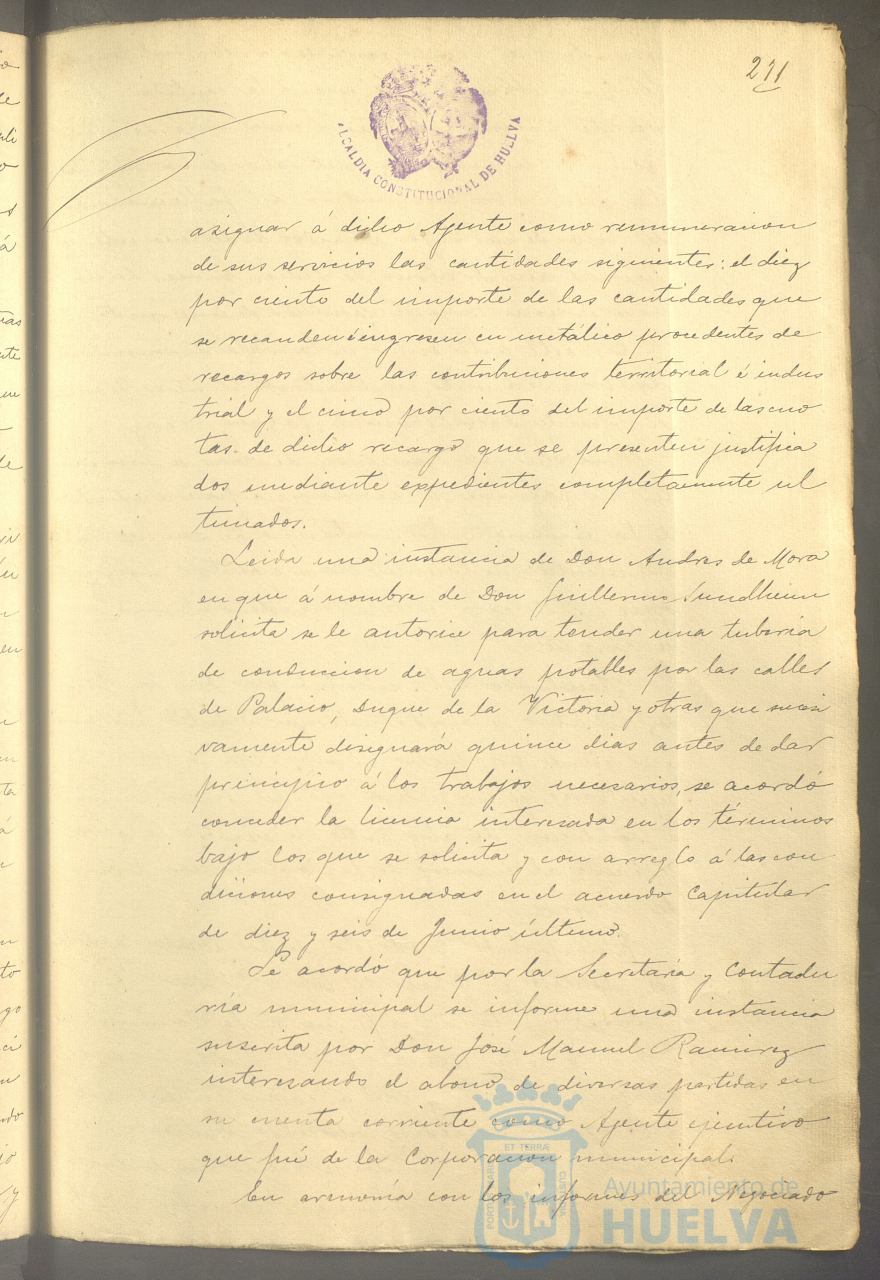 271
ALCALDIA CONSTITUCIONAL DE HUELVA
asignar á dicho Agente como remuneracion
de sus servicios las cantidades siguientes: el diez
por ciento del importe de las cantidades que
se recauden é ingresen en metálico procedentes de
recargos sobre las contribuciones territorial é indus
trial y el cinco por ciento del importe de las cuo
tas de dicho recargo que se presenten justifica
dos mediante expedientes completamente ul
timados.
Leida una instancia de Don Andres de Mora
en que á nombre de Don Guillermo Sundheim
solicita se le autorice para tender una tuberia
de conduccion de aguas potables por las calles
de Palacio, Duque de la Victoria y otras que sucesi
vamente disignará quince dias antes de dar
principio á los trabajos necesarios, se acordó
conceder la licencia interesada en los términos
bajo los que se solicita y con arreglo á las con
diciones consignadas en el acuerdo capitular
de diez y seis de Junio último.
Se acordó que por la Secretaría y Contadu
ría municipal se informe una instancia
suscrita por Don José Manuel Ramirez
interesando el abono de diversas partidas en
su cuenta corriente como Agente ejecutivo
que fué de la Corporacion municipal.
En armonía con los informes del Negociado
Ayuntamiento de
HUELVA